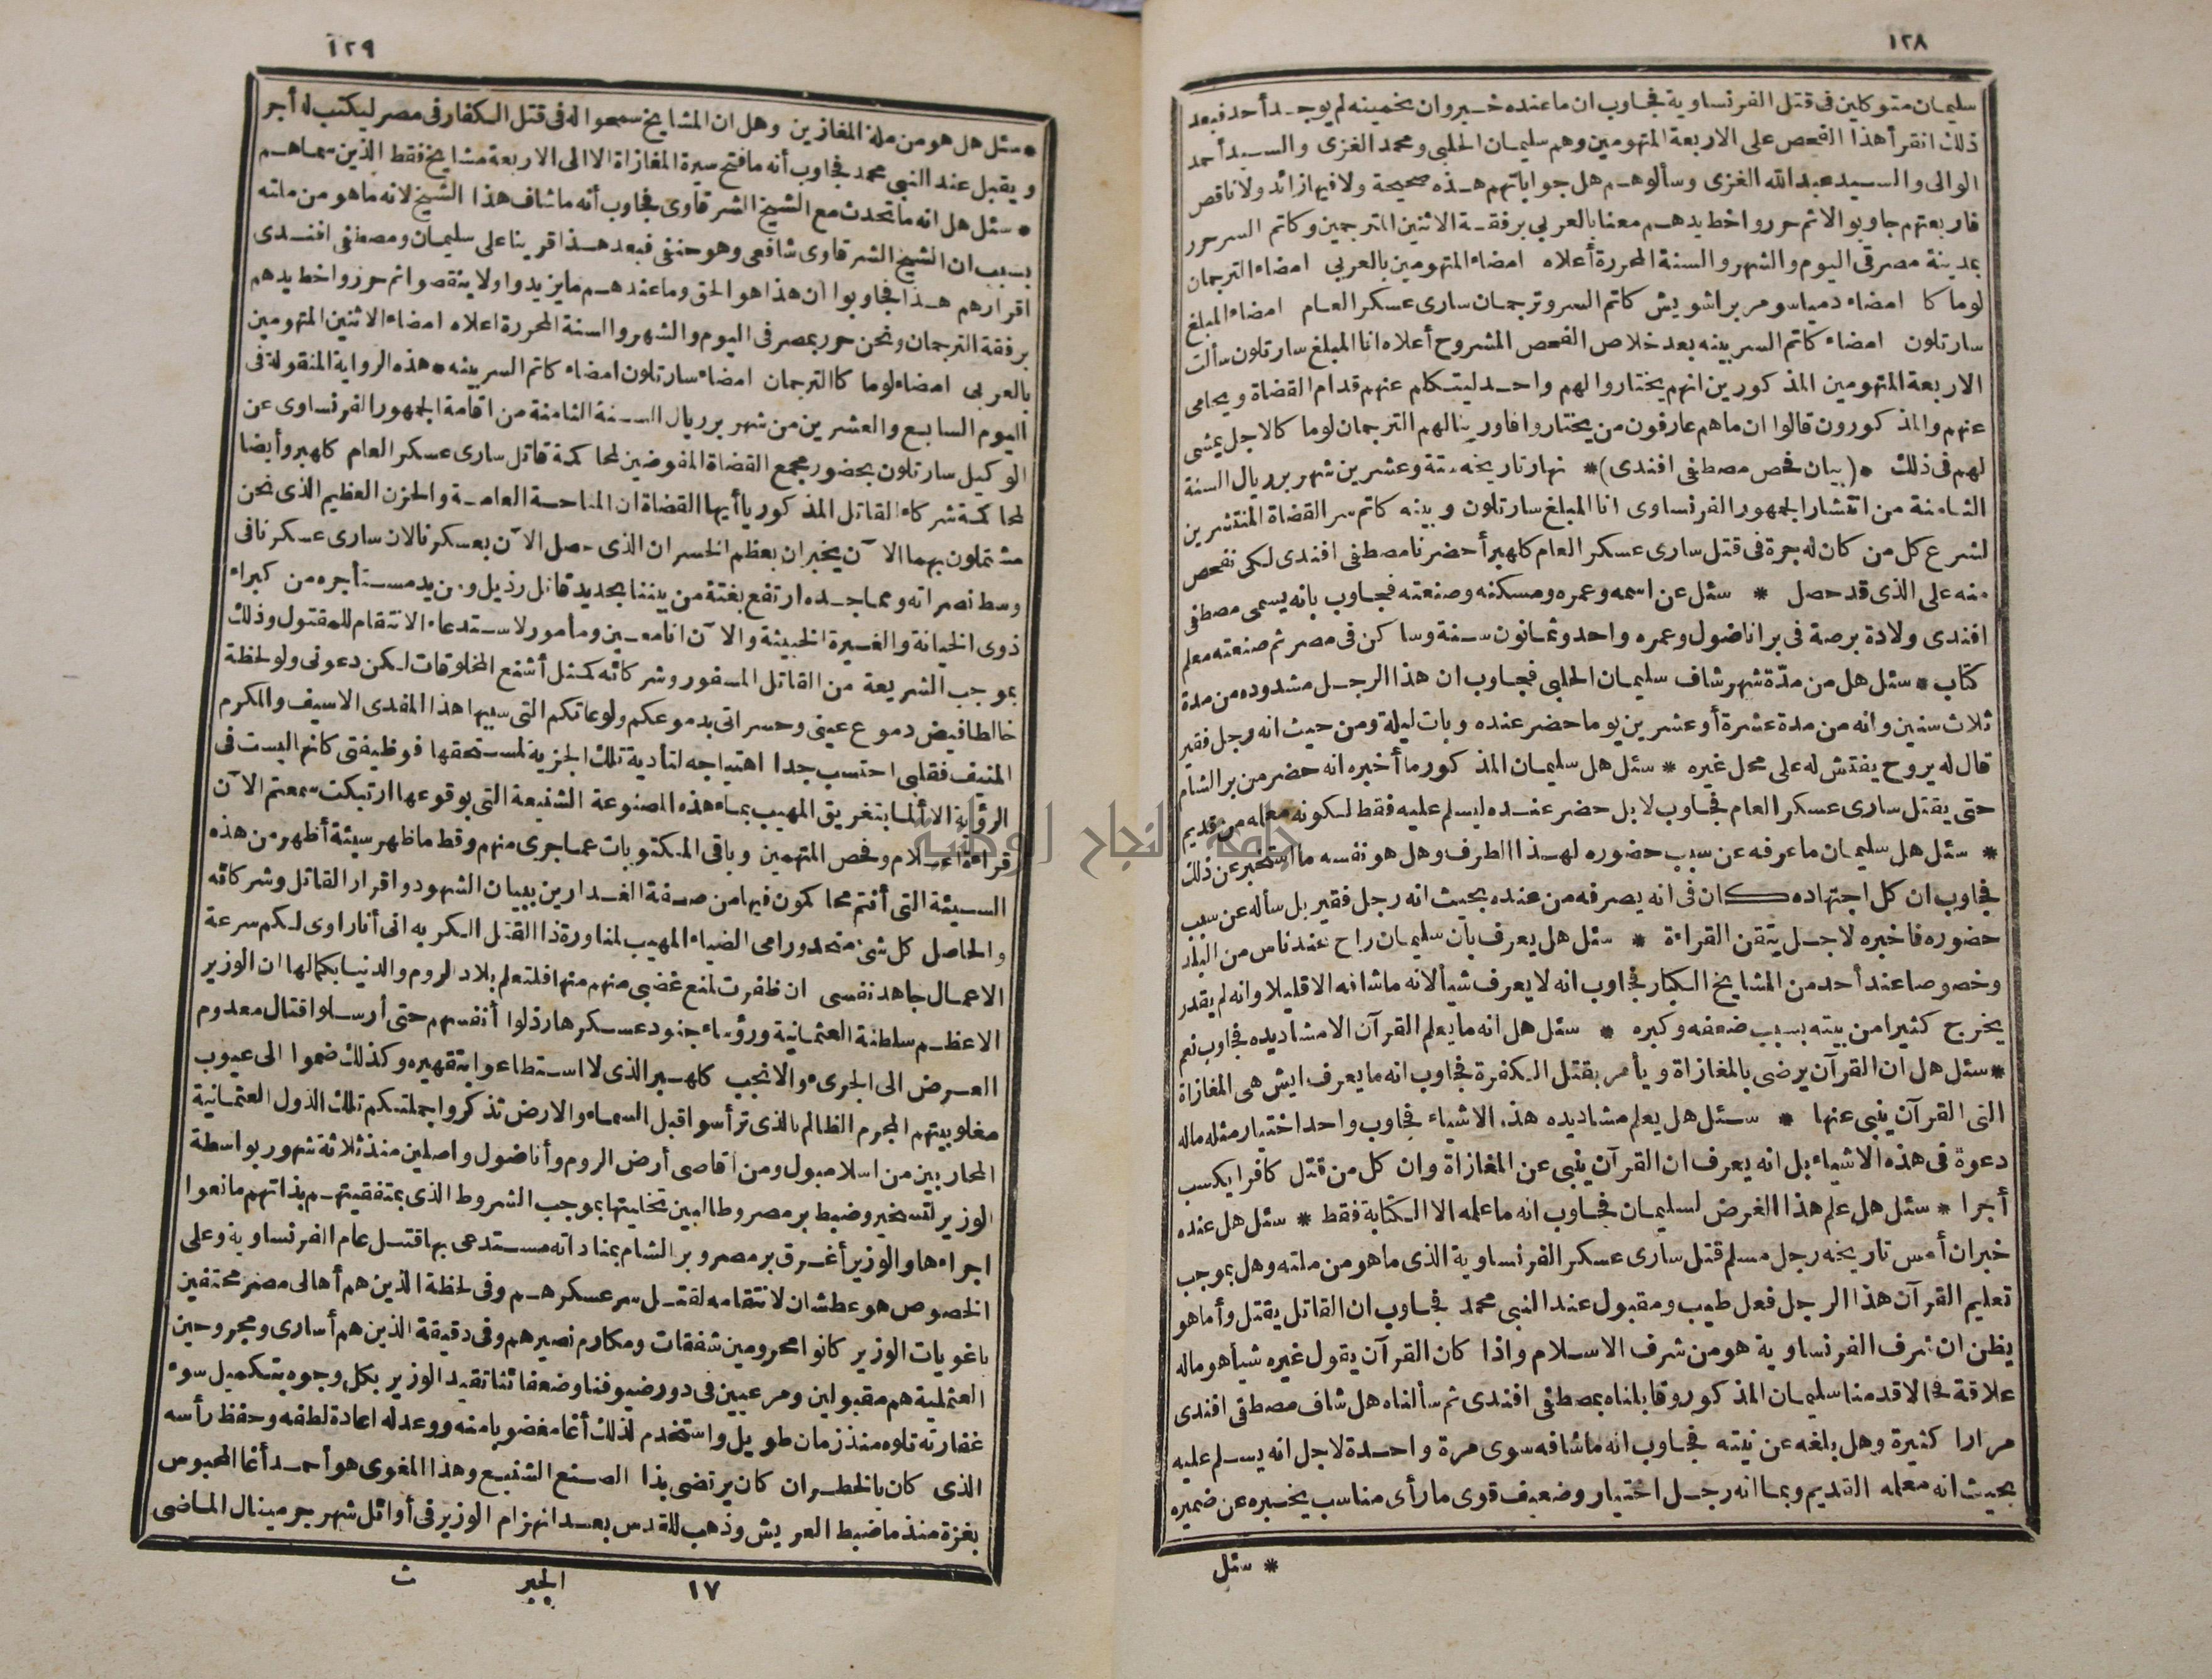 ١٢٨
سليمان متوكلين فى قتل الفرنساوية فجاوب ان ماعنده خبر وان بتخمينه لم يوجد أحد فبعد
ذلك انقرأ هذا الفحص على الاربعة المتهومين وهم سليمان الحلبى ومحمد الغزى والسيد أحمد
الوالى والسيد عبد الله الغزى وسألوهم هل جواباتهم هذه صحيحة ولا فيها زائد ولا ناقص
فاربعتهم جاوبوا لا ثم حرروا خط يدهم معنا بالعربي برفقة الاثنين المترجمين وكاتم السر حرر
بمدينة مصر فى اليوم والشهر والسنة المحررة أعلاه امضاء المتهومين بالعربي امضاء الترجمان
لوما كا امضاء دمياسومر براشويش كاتم السر وترجمان سارى عسكر العام امضاء المبلغ
سارتلون امضاء كاتم السر بينه بعد خلاص الفحص المشروح أعلاه انا المبلغ سارتلون سألت
الاربعة المتهومين المذكورين انهم يختاروا لهم واحد ليتكلم عنهم قدام القضاة ويحامى
عنهم والمذكورون قالوا ان ماهم عارفون من يختاروا فاورينا لهم الترجمان لوما كا لاجل يمشى
لهم فى ذلك * (بيان فحص مصطفى افندى) * نهار تاريخه ستة وعشرين شهر برريال السنة
الثامنة من انتشار الجمهور الفرنساوى انا المبلغ سارتلون وبينه كاتم سر القضاة المنتشرين
لشرع كل من كان له جرة فى قتل سارى عسكر العام كاهبر أحضرنا مصطفى افندى لكى نفحص
منه على الذى قد حصل * سئل عن اسمه وعمره ومسكنه وصنعته فجاوب بانه يسمى مصطفى
افندى ولادة برصة فى بر اناضول وعمره واحد وثمانون سنة وساكن فى مصر ثم صنعته معلم
كتاب * سئل هل من مدّة شهر شاف سليمان الحلبى فجاوب ان هذا الرجل مشدوده من مدة
ثلاث سنين وانه من مدة عشرة أو عشرين يوما حضر عنده وبات ليلة ومن حيث انه رجل فقير
قال له يروح يفتش له على محل غيره * سئل هل سليمان المذكور ما أخبره انه حضر من بر الشام
حتى يقتل سارى عسكر العام فجاوب لا بل حضر عنده ليسلم عليه فقط لكونه معلمه من قديم
* سئل هل سليمان ما عرفه عن سبب حضوره لهذا الطرف وهل هو نفسه ما استخبر عن ذلك
فجاوب ان كل اجتهاده كان فى انه يصرفه من عنده بحيث انه رجل فقير بل سأله عن سبب
حضوره فاخبره لاجل يتقن القراءة * سئل هل يعرف بان سليمان راح عند ناس من البلد
وخصوصا عند أحد من المشايخ الكبار فجاوب انه لا يعرف شيأ لانه ما شافه الا قليلا وانه لم يقدر
يخرج كثيرا من بيته بسبب ضعفه وكبره * سئل هل انه ما يعلم القرآن الا مشاديده فجاوب نعم
* سئل هل ان القرآن يرضى بالمغازاة ويأمر بقتل الكفرة فجاوب انه ما يعرف ايش هى المغازاة
التى القرآن ينبى عنها * سئل هل يعلم مشاديده هذه الاشياء فجاوب واحد اختيار مثله ماله
دعوة فى هذه الاشياء بل انه يعرف ان القرآن ينبى عن المغازاة وان كل من قتل كافرا يكسب
أجرا * سئل هل علم هذا الغرض لسليمان فجاوب انه ما علمه الا الكتابة فقط * سئل هل عنده
خبر ان أمس تاريخه رجل مسلم قتل سارى عسكر الفرنساوية الذى ماهو من ملته وهل بموجب
تعليم القرآن هذا الرجل فعل طيب ومقبول عند النبى محمد فجاوب ان القاتل يقتل وأما هو
يظن ان شرف الفرنساوية هو من شرف الاسلام واذا كان القرآن يقول غيره شيأ هو ماله
علاقة فحالا قدمنا سليمان المذكور وقابلناه بمصطفى افندى ثم سألناه هل شاف مصطفى افندى
مرارا كثيرة وهل بلغه عن نيته فجاوب انه ما شافه سوى مرة واحدة لاجل انه يسلم عليه
بحيث انه معلمه القديم وبما انه رجل اختيار وضعيف قوى ما رأى مناسب يخبره عن ضميره
* سئل
١٢٩
* سئل هل هو من ملة المغازين وهل ان المشايخ سمعوا له فى قتل الكفار فى مصر ليكتب له أجر
ويقبل عند النبى محمد فجاوب أنه ما فتح سيرة المغازاة الا الى الاربعة مشايخ فقط الذين سماهم
* سئل هل انه ما تحدث مع الشيخ الشرقاوى فجاوب أنه ما شاف هذا الشيخ لانه ماهو من ملته
بسبب ان الشيخ الشرقاوى شافعى وهو حنفى فبعد هذا قرينا على سليمان ومصطفى افندى
اقرارهم هذا فجاوبوا ان هذا هو الحق وما عندهم ما يزيدوا ولا ينقصوا ثم حرروا خط يدهم
برفقة الترجمان ونحن حرر بمصر فى اليوم والشهر والسنة المحررة اعلاه امضاء الاثنين المتهومين
بالعربى امضاء لوما كا الترجمان امضاء سارتلون امضاء كاتم السر بينه * هذه الرواية المنقولة فى
اليوم السابع والعشرين من شهر برريال السنة الثامنة من اقامة الجمهور الفرنساوى عن
الوكيل سارتلون بحضور مجمع القضاة المفوضين لمحاكمة قاتل سارى عسكر العام كاهبر وأيضا
لمحاكمة شركاء القاتل المذكور يا أيها القضاة ان المناحة العامة والحزن العظيم الذى نحن
مشتملون بهما الآن يخبران بعظم الخسران الذى حصل الآن بعسكرنا لان سارى عسكرنا فى
وسط نصراته ومماجده ارتفع بغتة من بيننا بحديد قاتل رذيل ومن يد مستأجره من كبراء
ذوى الخيانة والغيرة الخبيثة والآن انا معين ومأمور لاستدعاء الانتقام للمقتول وذلك
بموجب الشريعة من القاتل المسفور وشركائه كمثل أشنع المخلوقات لكن دعونى ولو لحظة
خالطا فيض دموع عينى وحسراتى بدموعكم ولوعاتكم التى سببها هذا المفدى الاسيف والمكرم
المنيف فقلبى احتسب جدا اهتياجه لتأدية تلك الجزية لمستحقها فوظيفتى كانها ليست فى
الرؤية الا ألما بتغريق المهيب بماء هذه المصنوعة الشنيعة التى بوقوعها ارتبكت سمعتم الآن
قراءة اعلام وفحص المتهمين وباقى المكتوبات عما جرى منهم وقط ما ظهر سيئة أظهر من هذه
السيئة التى أنتم محاكمون فيها من صفة الغدارين ببيان الشهود واقرار القاتل وشركائه
والحاصل كل شئ متحد ورامى الضياء المهيب لمناورة ذا القتل الكريه انى أنا راوى لكم سرعة
الاعمال جاهد نفسى ان ظفرت لمنع غضبى منهم منها فلتعلم بلاد الروم والدنيا بكمالها ان الوزير
الاعظم سلطنة العثمانية ورؤساء جنود عسكرها رذلوا أنفسهم حتى أرسلوا قتال معدوم
العرض الى الجرىء والانجب كاهبر الذى لا استطاعوا بتقهيره وكذلك ضموا الى عيوب
مغلوبيتهم المجرم الظالم بالذى ترأسوا قبل السماء والارض تذكروا جملتكم تلك الدول العثمانية
المحاربين من اسلامبول ومن أقاصى أرض الروم وأناضول واصلين منذ ثلاثة شهور بواسطة
الوزير لتسخير وضبط بر مصر وطالبين تخليتها بموجب الشروط الذى بمتفقيتهم بذاتهم مانعوا
اجراءها والوزير أغرق بر مصر وبر الشام بمناداته مستدعى بها قتل عام الفرنساوية وعلى
الخصوص هو عطشان لانتقامه لقتل سر عسكرهم وفى لحظة الذين هم أهالى مصر محتفين
باغويات الوزير كانوا محرومين شفقات ومكارم نصيرهم وفى دقيقة الذين هم أسارى ومجروحين
العثملية هم مقبولين ومرعيين فى دور ضيوفنا وضعفائنا تقيد الوزير بكل وجوه بتكميل سوء
غفارته تلوه منذ زمان طويل واستخدم لذلك أغا مغضوبا منه ووعد له اعادة لطفه وحفظ رأسه
الذى كان بالخطر ان كان يرتضى بذا الصنع الشنيع وهذا المغوى هو أحمد أغا المحبوس
بغزة منذ ما ضبط العريش وذهب للقدس بعد انهزام الوزير فى أوائل شهر جرمينال الماضى
١٧ الجبر ث
جامعة النجاح الوطنية